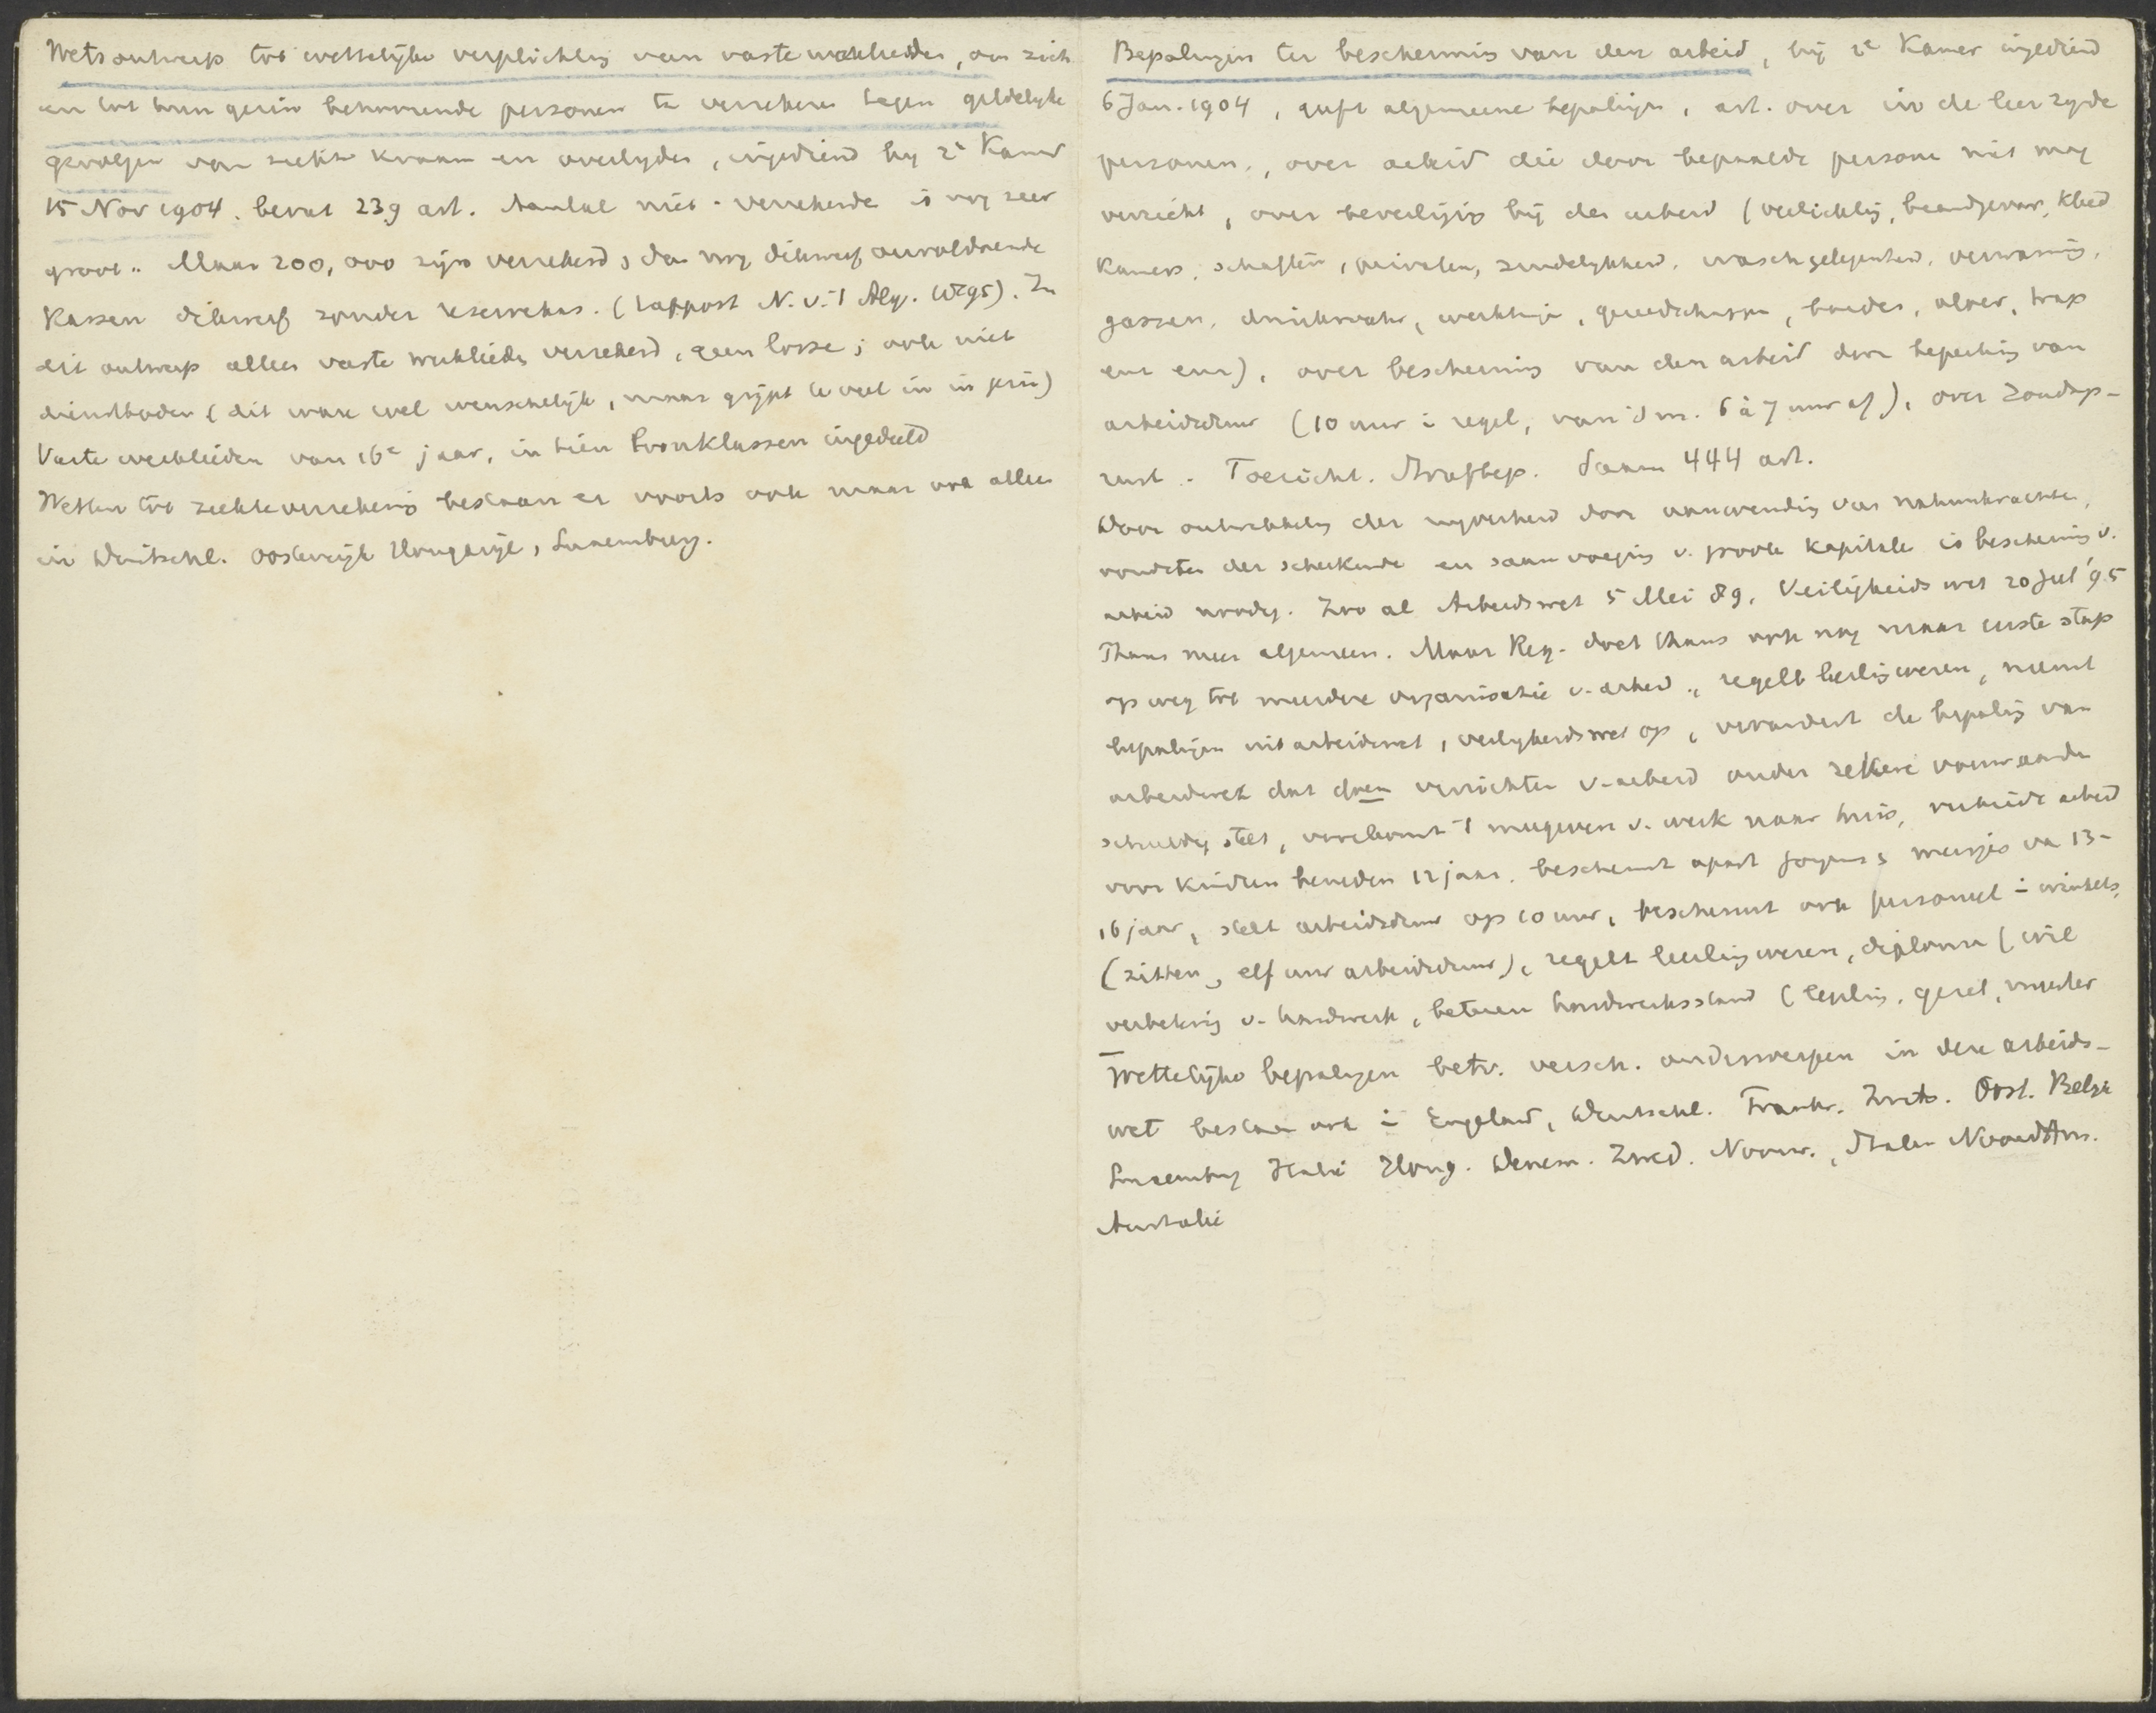 Wetsontwerp tot wettelijke verplichting van vaste werklieden, om zich
en tot hun gezin behoorende personen te verzekeren tegen geldelijke
gevolgen van ziekte kraam en overlijden, ingediend bij 2e Kamer
15 Nov 1904. bevat 239 art. Aantal niet-verzekerde is nog zeer
groot. Maar 200,000 zijn verzekerd, dan nog dikwerf onvoldoende
Kassen dikwerf zonder reservekas. (rapport N. v. 't Alg. 1895). In
dit ontwerp alleen vaste werklieden verzekerd, geen losse; ook niet
dienstboden (dit ware wel wenschelijk, maar grijpt te veel in in gezin)
Vaste werklieden van 16e jaar, in tien loonklassen ingedeeld
Wetten tot ziekteverzekering bestaan er voorts ook maar alleen
in Duitschl. Oostenrijk Hongarije, Luxemburg.
Bepalingen ter bescherming van den arbeid, bij 2e Kamer ingediend
6 Jan. 1904, geeft algemeene bepalingen, art. over in de leer zijnde
personen, over arbeid die door bepaalde persone niet mag
verricht, over beveiliging bij den arbeid (verlichting, brandgevaar, kleed
Kamers, schaften, privaten, zindelijkheid, waschgelegenheid, verwarming,
gassen, drinkwater, werktuigen, gereedschappen, vloer, trap
enz enz), over bescherming van den arbeid door beperking van
arbeidsduur (10 uur i regel, van 's m. 6 à 7 uur af), over Zondags-
rust. Toezicht. Strafbep. Saam 444 art.
Door ontwikkeling der nijverheid door aanwending van natuurkrachten,
vondsten der scheikunde en saamvoeging v. groote kapitale is bescherming v.
arbeid noodig. Zoo al Arbeidswet 5 Mei 89, Veiligheidswet 20 Jul '95
Thans meer algemeen. Maar Reg. doet thans ook nog maar eerste stap
op weg tot meerdere organisatie v. arbeid, regelt leerlingwezen, neemt
bepalingen uit arbeidswet, veiligheidswet op, verandert de bepaling van
arbeidswet dat doen verrichten v. arbeid onder zekere voorwaarden
schuldig stelt, verbiedt 't meegeven v. werk naar huis, verbiedt arbeid
voor kinderen beneden 12 jaar. beschermt apart jongens & meisjes van 13-
16 jaar, stelt arbeidsduur op 10 uur, beschermt ook personeel i winkels,
(zitten, elf uur arbeidsduur), regelt leerlingwezen, diploma (wil
verbetering v. handwerk, beteren handwerksstand (leerling, gezel, meester
Wettelijke bepalingen betr. versch. onderwerpen in deze arbeids-
wet bestaan ook i Engeland, Duitschl. Frankr. Zwits. Oost. Belgie
Luxemburg Italië Hong. Denem. Zwed. Noorw., Staten NoordAm.
Australië